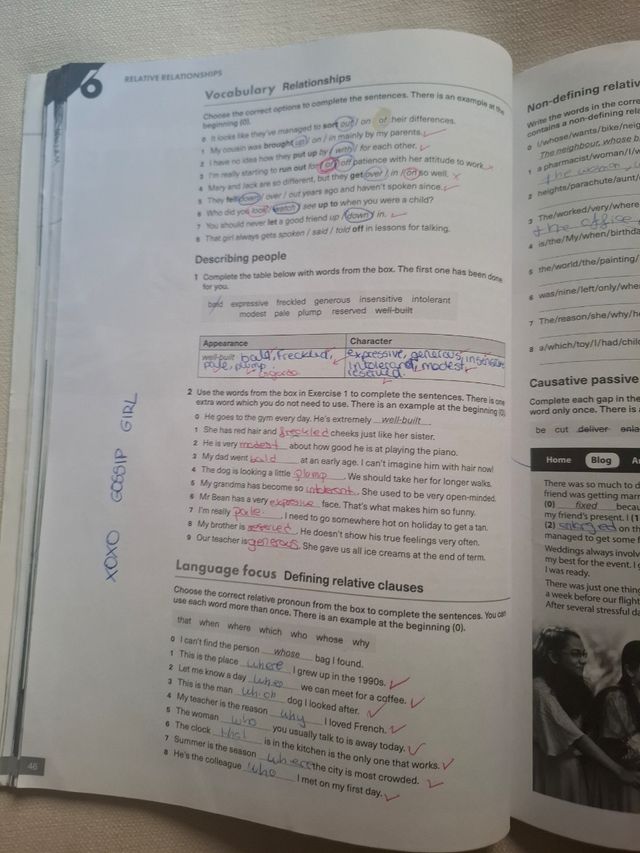 6
RELATIVE RELATIONSHIPS
Vocabulary Relationships
Choose the correct options to complete the sentences. There is an example at the
beginning (0).
0 It looks like they've managed to sort out / on / of their differences.
1 My cousin was brought up / on / in mainly by my parents.
2 I have no idea how they put up by / with / for each other.
3 I'm really starting to run out for / of / off patience with her attitude to work.
4 Mary and Jack are so different, but they get over / in / on so well.
5 They fell down / over / out years ago and haven't spoken since.
6 Who did you look / watch / see up to when you were a child?
7 You should never let a good friend up / down / in.
8 That girl always gets spoken / said / told off in lessons for talking.
Describing people
1 Complete the table below with words from the box. The first one has been done
for you.
bald expressive freckled generous insensitive intolerant
modest pale plump reserved well-built
Appearance Character
well-built bald, freckled, expressive, generous, insensitive
pale, plump intolerant, modest
reserved
2 Use the words from the box in Exercise 1 to complete the sentences. There is one
extra word which you do not need to use. There is an example at the beginning (0).
0 He goes to the gym every day. He's extremely well-built.
1 She has red hair and freckled cheeks just like her sister.
2 He is very modest about how good he is at playing the piano.
3 My dad went bald at an early age. I can't imagine him with hair now!
4 The dog is looking a little plump. We should take her for longer walks.
5 My grandma has become so intolerant. She used to be very open-minded.
6 Mr Bean has a very expressive face. That's what makes him so funny.
7 I'm really pale. I need to go somewhere hot on holiday to get a tan.
8 My brother is reserved. He doesn't show his true feelings very often.
9 Our teacher is generous. She gave us all ice creams at the end of term.
XOXO GOSSIP GIRL
Language focus Defining relative clauses
Choose the correct relative pronoun from the box to complete the sentences. You can
use each word more than once. There is an example at the beginning (0).
that when where which who whose why
0 I can't find the person whose bag I found.
1 This is the place where I grew up in the 1990s.
2 Let me know a day we can meet for a coffee.
3 This is the man which dog I looked after.
4 My teacher is the reason why I loved French.
5 The woman who you usually talk to is away today.
6 The clock that is in the kitchen is the only one that works.
7 Summer is the season where the city is most crowded.
8 He's the colleague who I met on my first day.
46
Non-defining relativ
Write the words in the corre
contains a non-defining rela
0 I/whose/wants/bike/neig
The neighbour, whose b
1 a pharmacist/woman/I/w
the woman,
2 heights/parachute/aunt/
3 The/worked/very/where
the office,
4 is/the/My/when/birthda
5 the/world/the/painting/
6 was/nine/left/only/wher
7 The/reason/she/why/he
8 a/which/toy/I/had/child
Causative passive
Complete each gap in the
word only once. There is a
be cut deliver enla
Home Blog A
There was so much to d
friend was getting marr
(0) fixed becau
my friend's present. I (1
(2) enlarged on th
managed to get some f
Weddings always involve
my best for the event. I g
I was ready.
There was just one thing
a week before our flight
After several stressful da